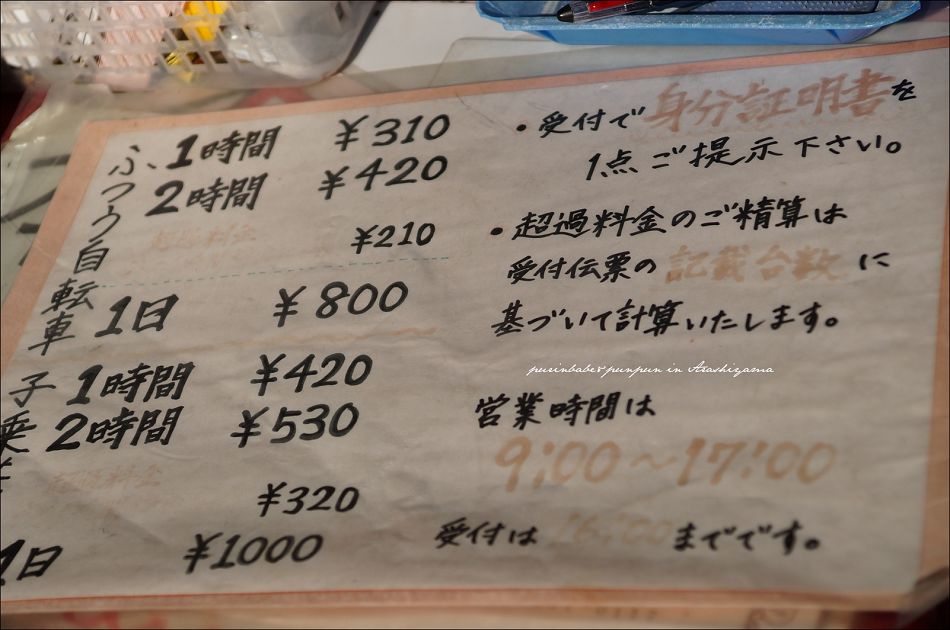 ふつう自転車
1時間 ¥310
2時間 ¥420
超過料金 ¥210
1日 ¥800
子乗せ
1時間 ¥420
2時間 ¥530
超過料金 ¥320
1日 ¥1000
・受付で身分証明書を
1点ご提示下さい。
・超過料金のご精算は
受付伝票の記載台数に
基づいて計算いたします。
営業時間は
9:00～17:00
受付は16:00までです。
purinbabe&punpun in Arashiyama